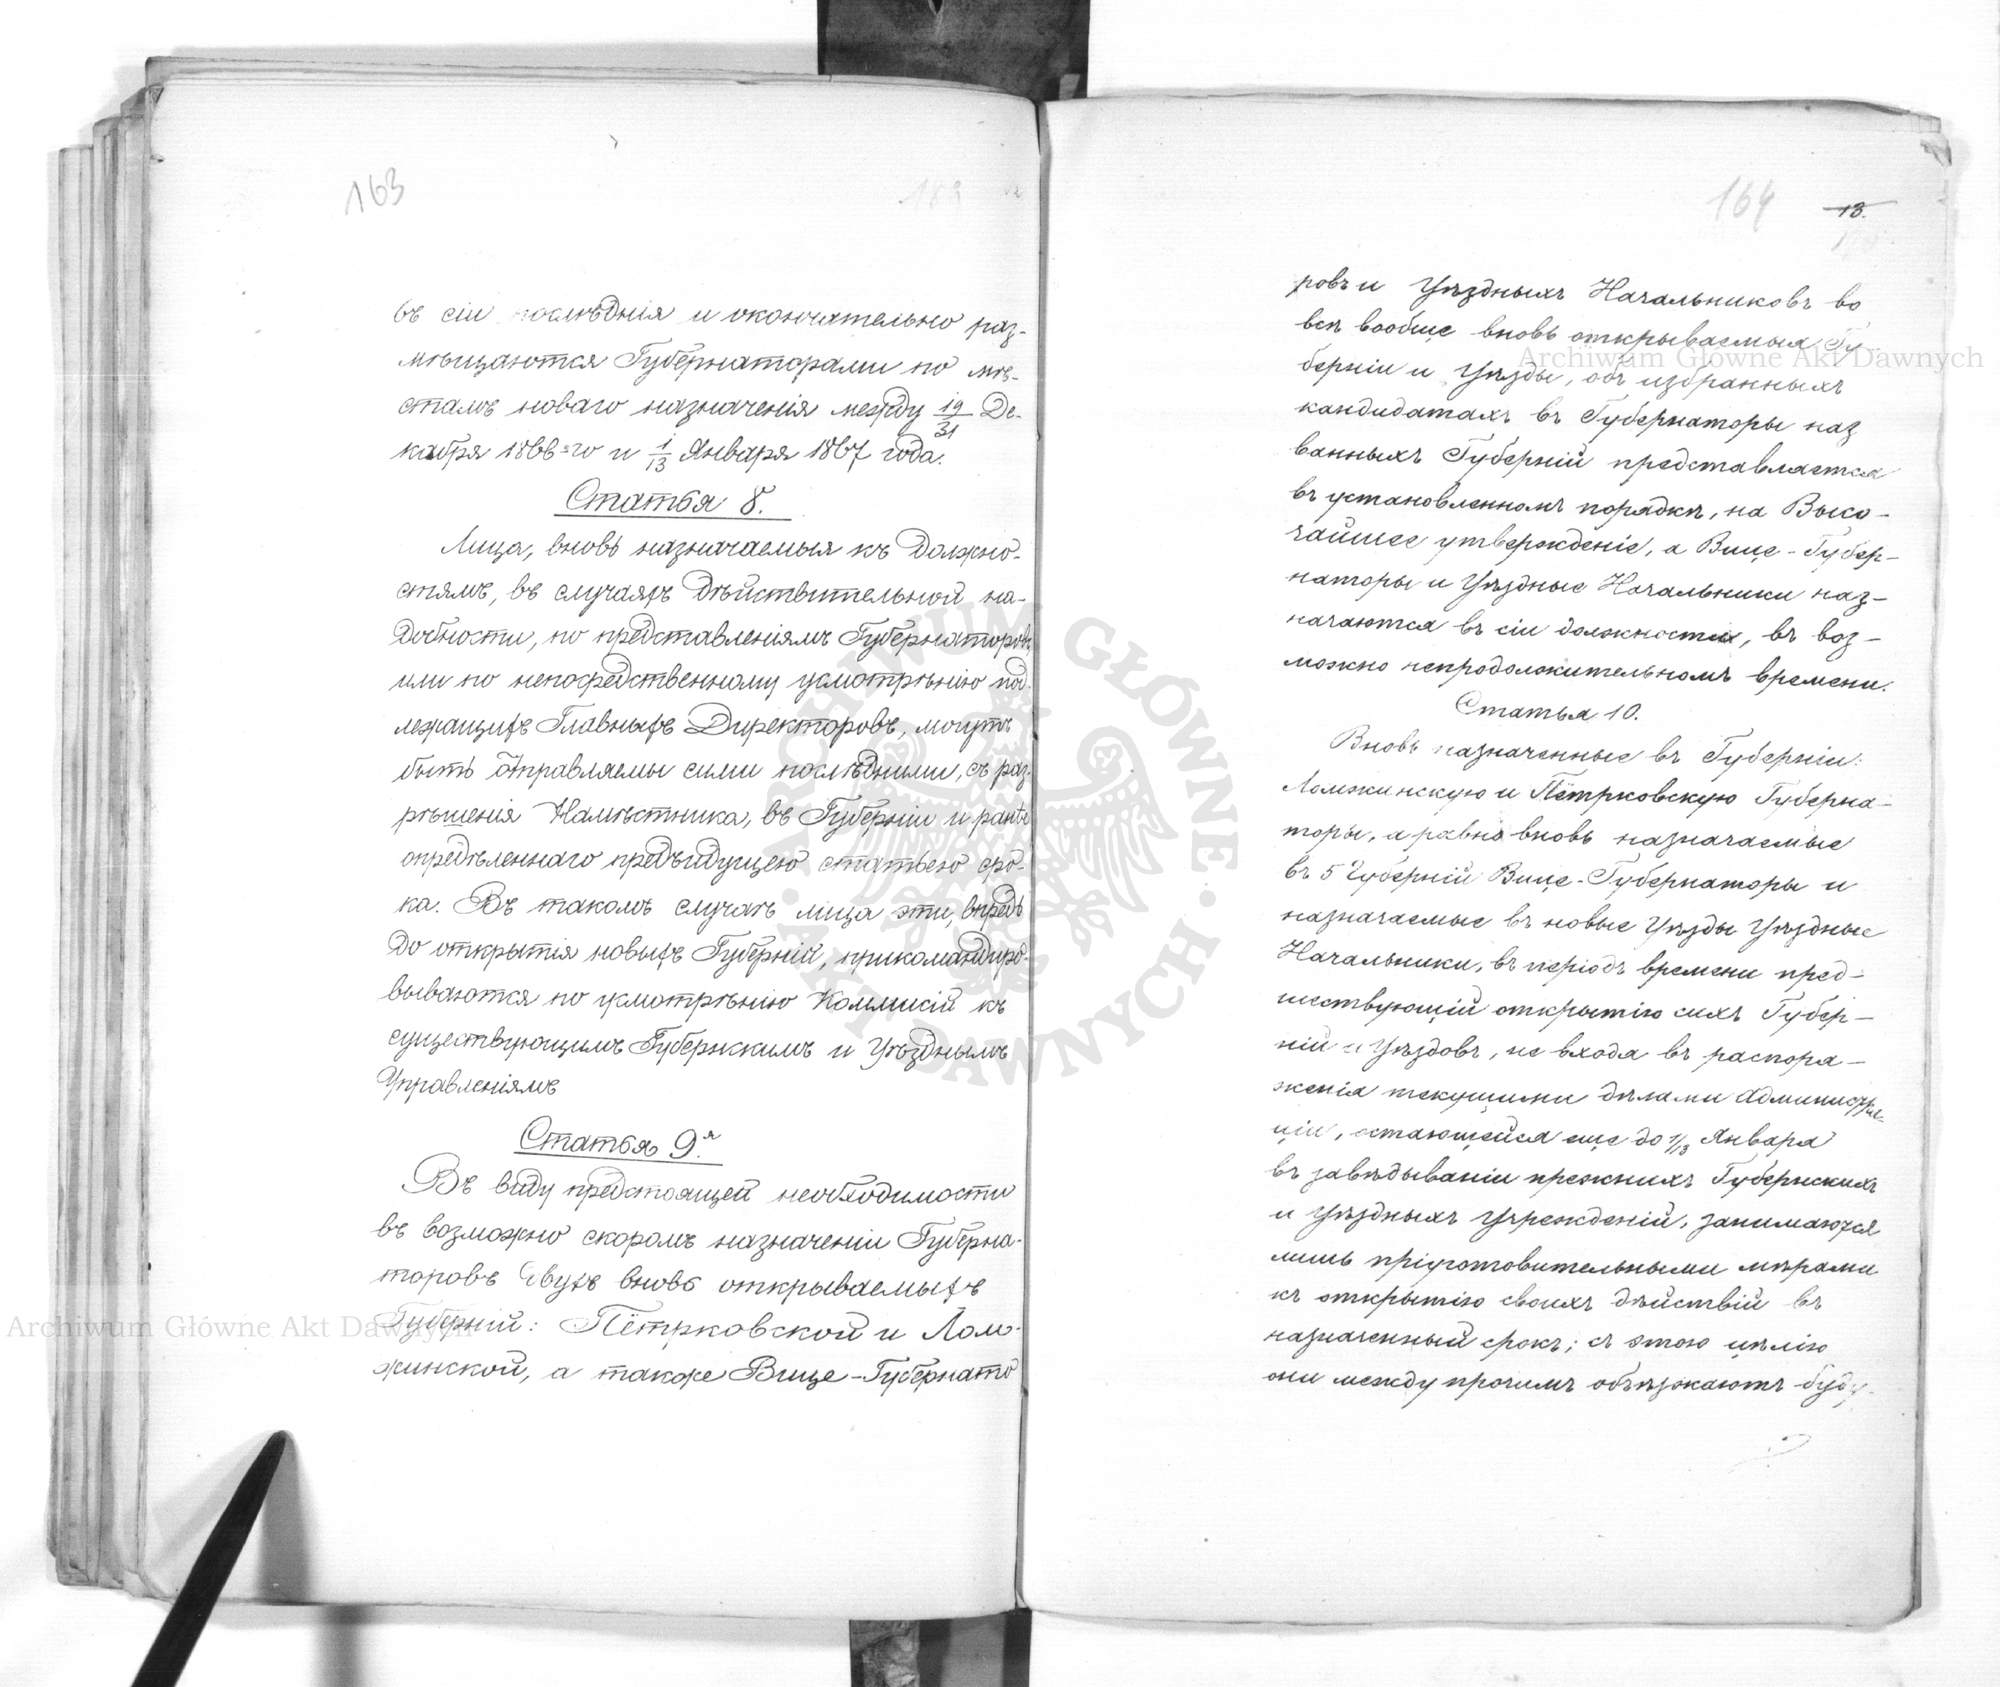 163
въ сіи послѣднія и окончательно раз-
мѣщаются Губернаторами по мѣ-
стамъ новаго назначенія между 19/31 Де-
кабря 1866-го и 1/13 Января 1867 года.
Статья 8.
Лица, вновь назначаемыя къ должно-
стямъ, въ случаяхъ дѣйствительной на-
добности, по представленіямъ Губернаторовъ
или по непосредственному усмотрѣнію под-
лежащихъ Главныхъ Директоровъ, могутъ
быть отправляемы сими послѣдними, съ раз-
рѣшенія Намѣстника, въ Губерніи и ранѣе
опредѣленнаго предъидущею статьею сро-
ка. Въ такомъ случаѣ лица эти, впредь
до открытія новыхъ Губерній, прикомандиро-
вываются по усмотрѣнію Коммисій къ
существующимъ Губернскимъ и Уѣзднымъ
Управленіямъ
Статья 9.я
Въ виду предстоящей необходимости
въ возможно скоромъ назначеніи Губерна-
торовъ двухъ вновь открываемыхъ
Губерній: Пётрковской и Лом-
жинской, а также Вице-Губернато
164
13.
ровъ и Уѣздныхъ Начальниковъ во
всѣ вообще вновь открываемыя Гу-
берніи и Уѣзды, объ избранныхъ
кандидатахъ въ Губернаторы наз
ванныхъ Губерній представляется
въ установленномъ порядкѣ, на Высо-
чайшее утвержденіе, а Вице-Губер-
наторы и Уѣздные Начальники наз-
начаются въ сіи должности, въ воз-
можно непродолжительномъ времени.
Статья 10.
Вновь назначенные въ Губерніи:
Ломжинскую и Пётрковскую Губерна-
торы, а равно вновь назначаемые
въ 5 Губерній Вице-Губернаторы и
назначаемые въ новые Уѣзды Уѣздные
Начальники, въ періодъ времени пред-
шествующій открытію сихъ Губер-
ній и Уѣздовъ, не входя въ распоря-
женія текущими дѣлами Администра-
ціи, остающейся еще до 1/13 Января
въ завѣдываніи прежнихъ Губернскихъ
и Уѣздныхъ Учрежденій, занимаются
лишь пріуготовительными мѣрами
къ открытію своихъ дѣйствій въ
назначенный срокъ; съ этою цѣлію
они между прочимъ объѣзжаютъ буду-
Archiwum Główne Akt Dawnych
Archiwum Główne Akt Dawnych
ARCHIWUM GŁÓWNE AKT DAWNYCH